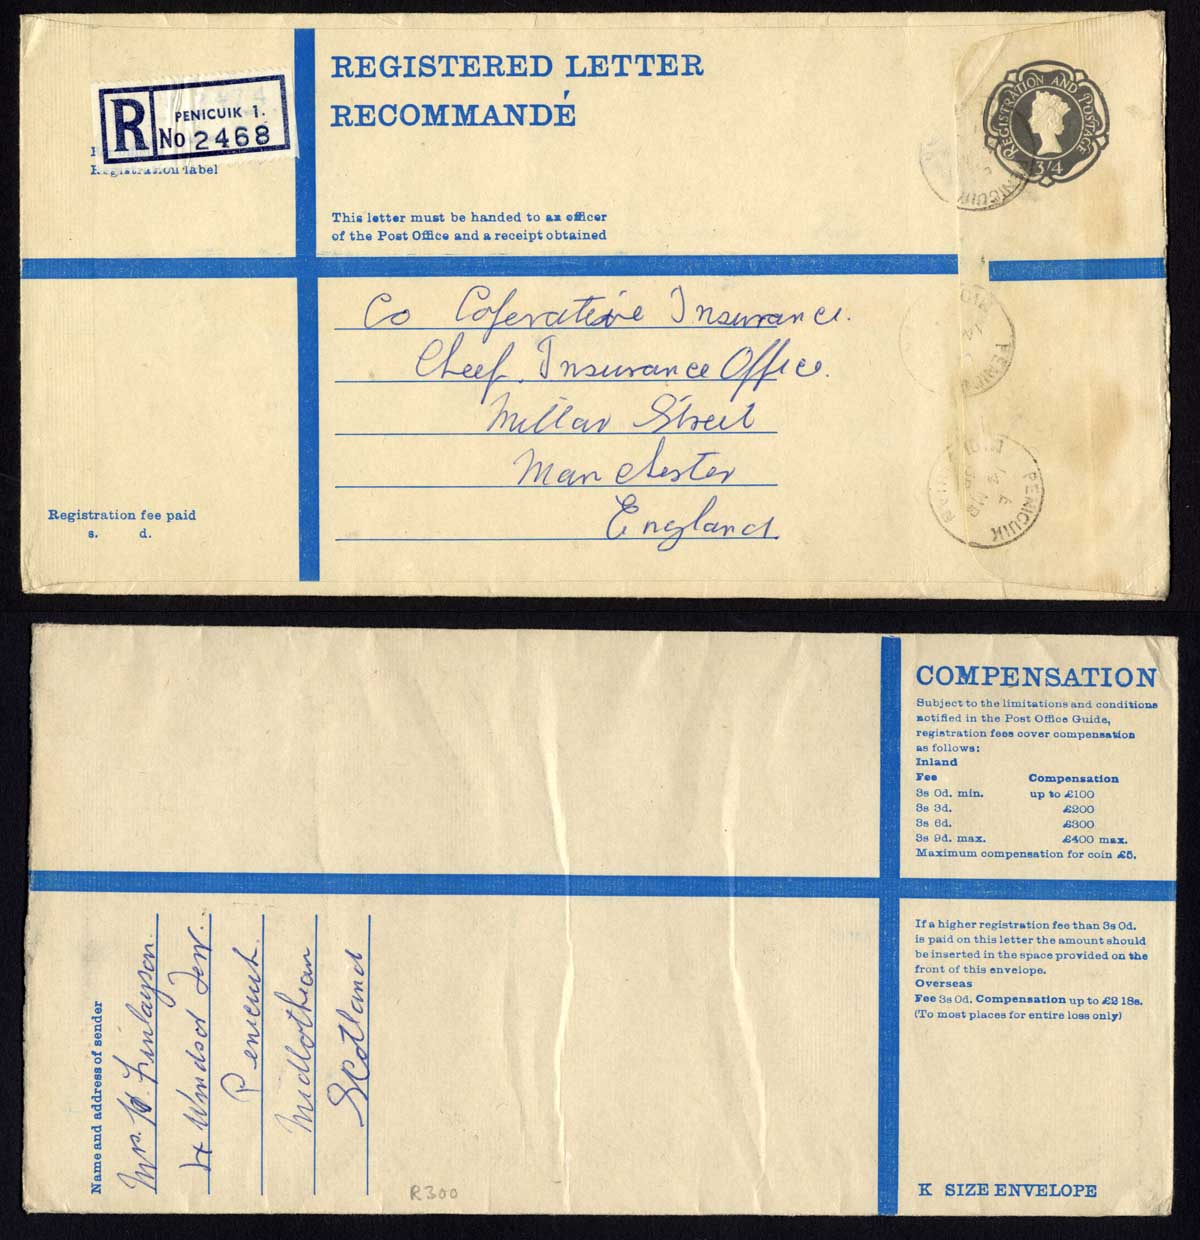 REGISTERED LETTER
RECOMMANDÉ
R PENICUIK 1.
No 2468
Registration label
REGISTRATION AND POSTAGE
3/4
PENICUIK
This letter must be handed to an officer
of the Post Office and a receipt obtained
Co Coperative Insurance.
Cheef. Insurance Office.
Millar Street
Manchester
England
PENICUIK
PENICUIK
Registration fee paid
s. d.
COMPENSATION
Subject to the limitations and conditions
notified in the Post Office Guide,
registration fees cover compensation
as follows:
Inland
Fee Compensation
3s 0d. min. up to £100
3s 3d. £200
3s 6d. £300
3s 9d. max. £400 max.
Maximum compensation for coin £5.
If a higher registration fee than 3s 0d.
is paid on this letter the amount should
be inserted in the space provided on the
front of this envelope.
Overseas
Fee 3s 0d. Compensation up to £2 18s.
(To most places for entire loss only)
K SIZE ENVELOPE
Name and address of sender
Mrs. H. Finlayson.
4 Windsor Terr.
Penicuik.
Midlothian
Scotland
R300